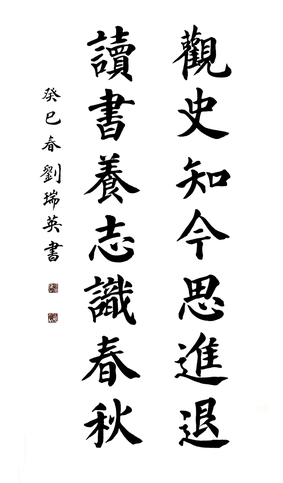 觀史知今思進退
讀書養志識春秋
癸巳春劉瑞英書